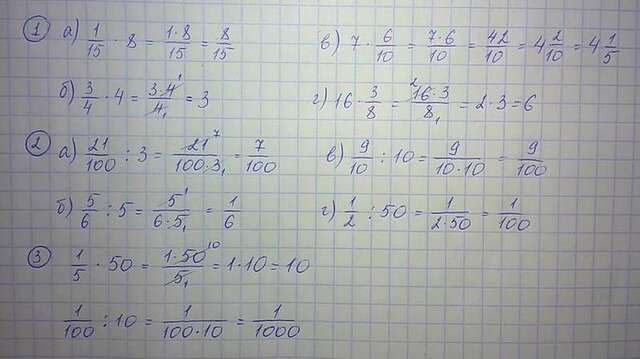 1 а) 1/15 · 8 = 1·8/15 = 8/15
в) 7 · 6/10 = 7·6/10 = 42/10 = 4 2/10 = 4 1/5
б) 3/4 · 4 = 3·4¹/4₁ = 3
г) 16 · 3/8 = ²16·3/8₁ = 2·3 = 6
2 а) 21/100 : 3 = 21⁷/100·3₁ = 7/100
в) 9/10 : 10 = 9/10·10 = 9/100
б) 5/6 : 5 = 5¹/6·5₁ = 1/6
г) 1/2 : 50 = 1/2·50 = 1/100
3 1/5 · 50 = 1·50¹⁰/5₁ = 1·10 = 10
1/100 : 10 = 1/100·10 = 1/1000